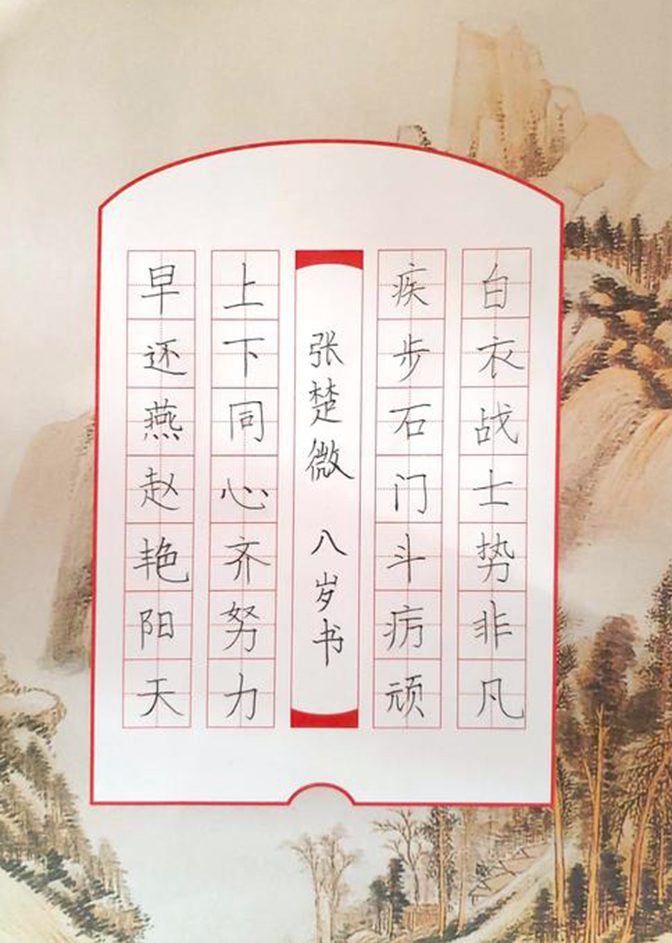 白衣战士势非凡
疾步石门斗疠顽
张楚微 八岁书
上下同心齐努力
早还燕赵艳阳天